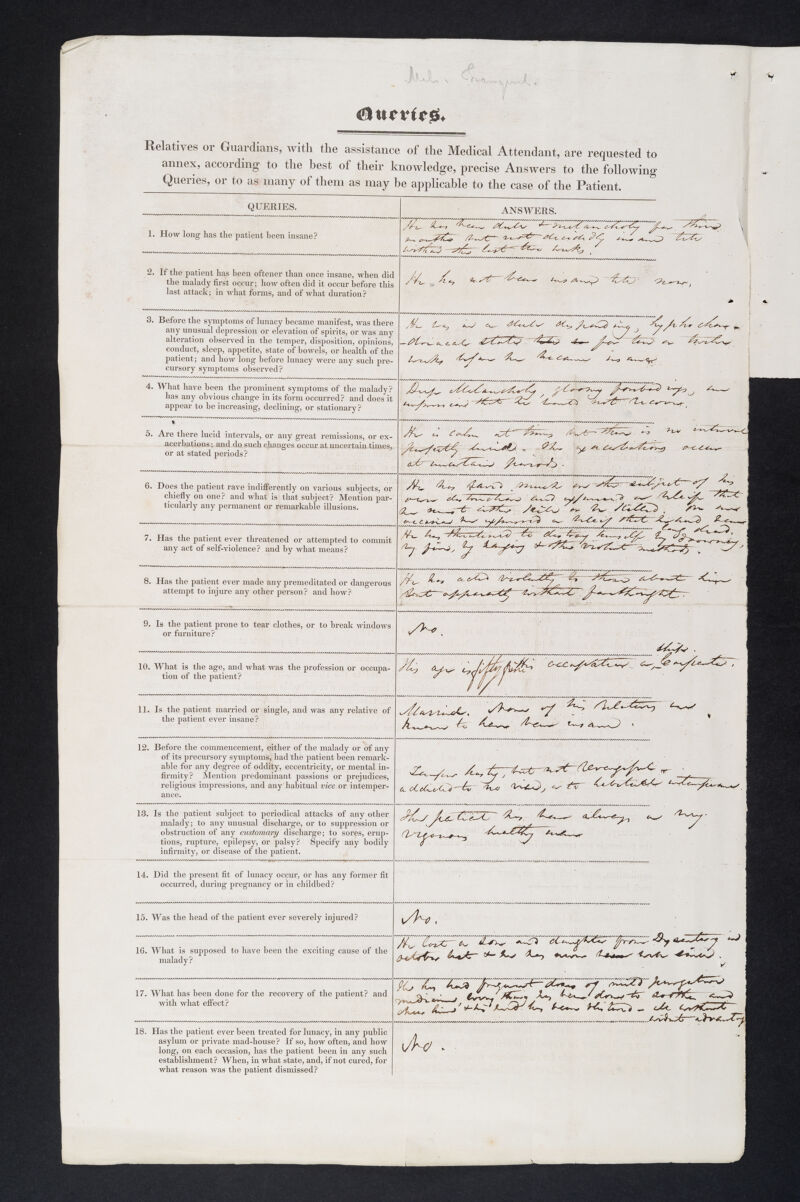 Queries.
Relatives or Guardians, with the assistance of the Medical Attendant, are requested to
annex, according to the best of their knowledge, precise Answers to the following
Queries, or to as many of them as may be applicable to the case of the Patient.
QUERIES.
ANSWERS.
1. How long has the patient been insane?
He has been dull & melancholy for three
months but not decidedly insane till
within the last two weeks.
2. If the patient has been oftener than once insane, when did
the malady first occur; how often did it occur before this
last attack; in what forms, and of what duration?
He has not been insane till now.
3. Before the symptoms of lunacy became manifest, was there
any unusual depression or elevation of spirits, or was any
alteration observed in the temper, disposition, opinions,
conduct, sleep, appetite, state of bowels, or health of the
patient; and how long before lunacy were any such pre-
cursory symptoms observed?
He was in a dull desponding, hypochon-
-driacal state for ten or twelve
weeks before he became insane.
4. What have been the prominent symptoms of the malady?
has any obvious change in its form occurred? and does it
appear to be increasing, declining, or stationary?
Deep Melancholy, gloomy forebodings, an
impression that he would not recover.
5. Are there lucid intervals, or any great remissions, or ex-
acerbations; and do such changes occur at uncertain times,
or at stated periods?
He is calm at times but there is no interval
perfectly lucid. The exacerbations occur
at uncertain periods.
6. Does the patient rave indifferently on various subjects, or
chiefly on one? and what is that subject? Mention par-
ticularly any permanent or remarkable illusions.
He has raved much on the subject of his
own destruction and expressed a belief that
he must either kill or be killed. On one
occasion he expressed a belief that he had been
dead.
7. Has the patient ever threatened or attempted to commit
any act of self-violence? and by what means?
He has threatened to destroy himself by drowning,
by fire, by hanging & other violent methods.
8. Has the patient ever made any premeditated or dangerous
attempt to injure any other person? and how?
He has acted violently to those about him
but apparently without forethought.
9. Is the patient prone to tear clothes, or to break windows
or furniture?
No.
10. What is the age, and what was the profession or occupa-
tion of the patient?
ship
His age is fifty His occupation a Carpenter.
11. Is the patient married or single, and was any relative of
the patient ever insane?
Married. None of his relatives are
known to have been insane.
12. Before the commencement, either of the malady or of any
of its precursory symptoms, had the patient been remark-
able for any degree of oddity, eccentricity, or mental in-
firmity? Mention predominant passions or prejudices,
religious impressions, and any habitual vice or intemper-
ance.
Temper hasty, but not revengeful &
addicted to no vice, or to habitual intemperance
13. Is the patient subject to periodical attacks of any other
malady; to any unusual discharge, or to suppression or
obstruction of any customary discharge; to sores, erup-
tions, rupture, epilepsy, or palsy? Specify any bodily
infirmity, or disease of the patient.
The patient has been always a very
vigorous healthy man
14. Did the present fit of lunacy occur, or has any former fit
occurred, during pregnancy or in childbed?
15. Was the head of the patient ever severely injured?
No.
16. What is supposed to have been the exciting cause of the
malady?
He lost a son and daughter from Dysentery in
october last & he has never been well since.
17. What has been done for the recovery of the patient? and
with what effect?
He has had frequent doses of mild purgative
medicine, every thing has been done to soothe and
cheer him & his head has been blistered - all without
advantage
18. Has the patient ever been treated for lunacy, in any public
asylum or private mad-house? If so, how often, and how
long, on each occasion, has the patient been in any such
establishment? When, in what state, and, if not cured, for
what reason was the patient dismissed?
No.